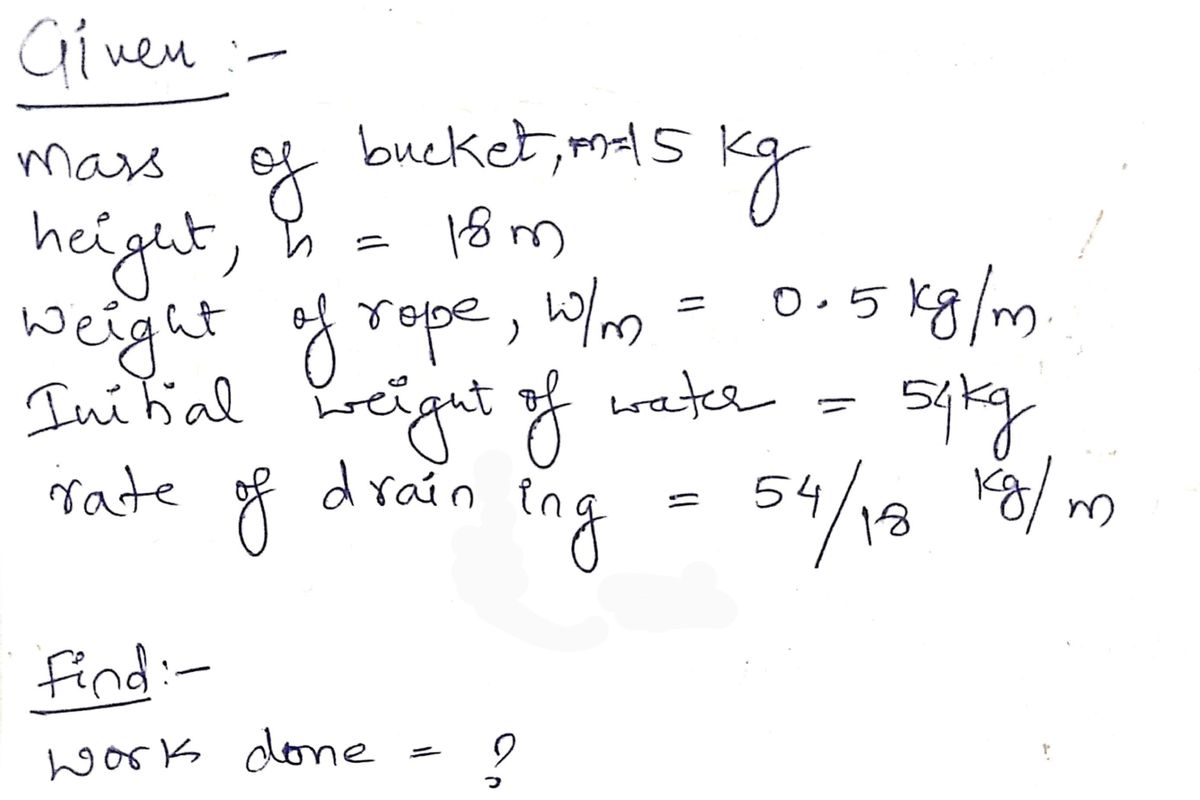 Given :-
mass of bucket, m=15 kg
height, h = 18 m
weight of rope, w/m = 0.5 kg/m.
Initial weight of water = 54kg
rate of draining = 54/18 kg/m
Find:-
work done = ?